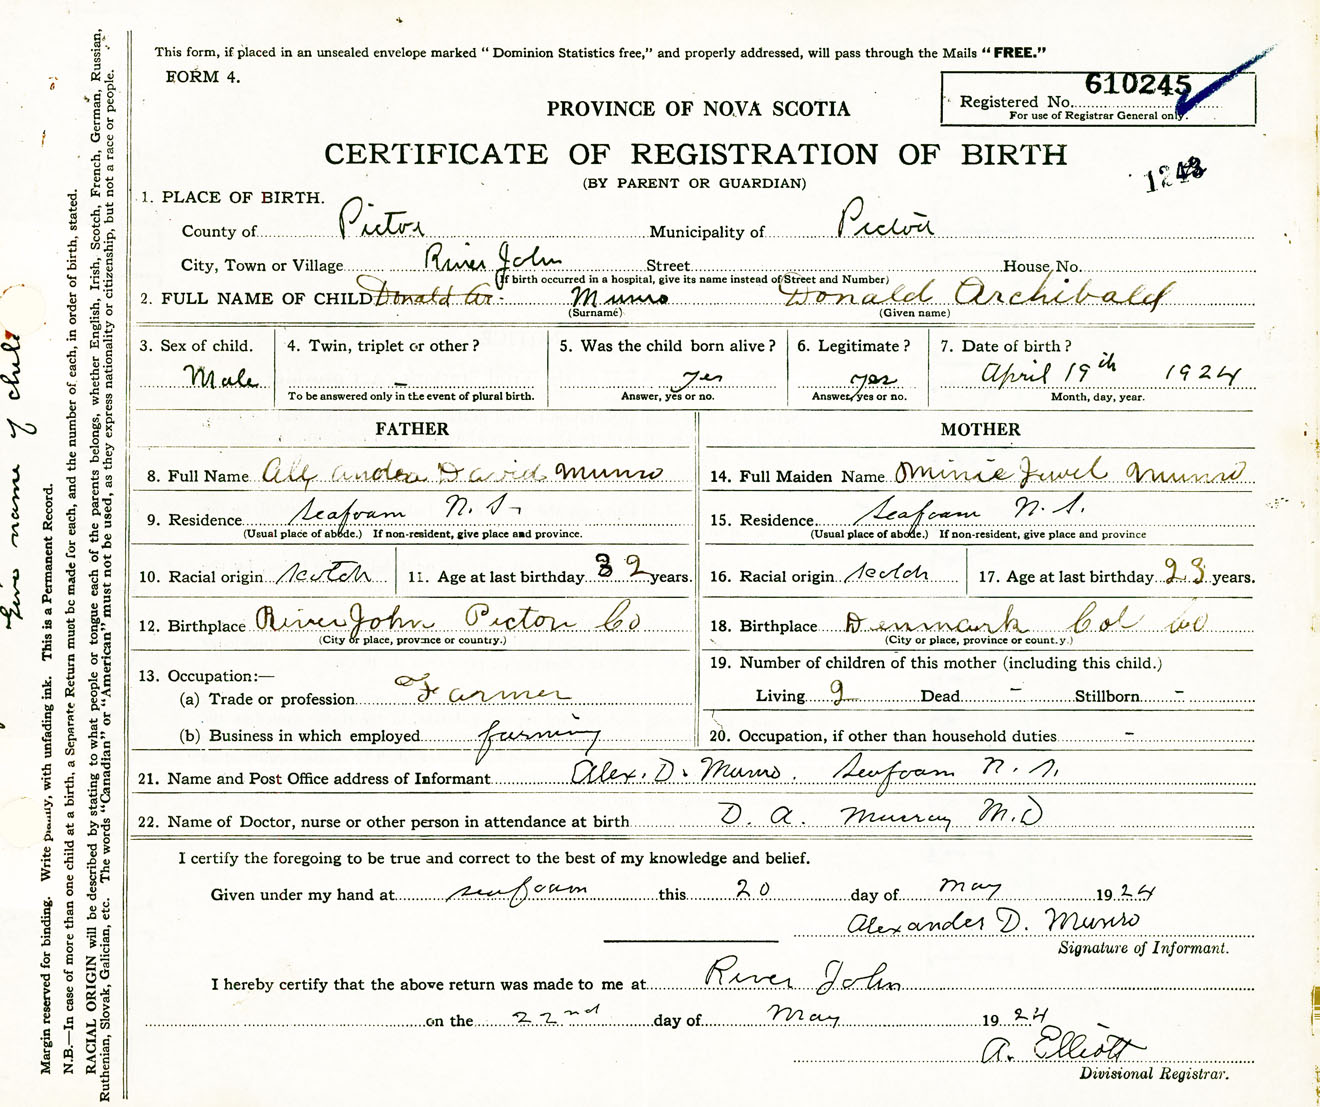 This form, if placed in an unsealed envelope marked "Dominion Statistics free," and properly addressed, will pass through the Mails "FREE."
FORM 4.
610245
Registered No.
For use of Registrar General only.
PROVINCE OF NOVA SCOTIA
CERTIFICATE OF REGISTRATION OF BIRTH
(BY PARENT OR GUARDIAN)
1. PLACE OF BIRTH.
County of Pictou Municipality of Pictou
City, Town or Village River John Street House No.
(If birth occurred in a hospital, give its name instead of Street and Number)
2. FULL NAME OF CHILD Donald Ar- Munro Donald Archibald
(Surname) (Given name)
3. Sex of child. 4. Twin, triplet or other? 5. Was the child born alive? 6. Legitimate? 7. Date of birth?
Male - yes yes April 19th 1924
To be answered only in the event of plural birth. Answer, yes or no. Answer, yes or no. Month, day, year.
FATHER MOTHER
8. Full Name Alexander David Munro 14. Full Maiden Name Minie Juvel Munro
9. Residence Seafoam N. S. 15. Residence. Seafoam N. S.
(Usual place of abode.) If non-resident, give place and province. (Usual place of abode.) If non-resident, give place and province
10. Racial origin Scotch 11. Age at last birthday 32 years. 16. Racial origin Scotch 17. Age at last birthday 23 years.
12. Birthplace River John Picton Co 18. Birthplace Denmark Col Co
(City or place, province or country.) (City or place, province or country.)
13. Occupation:— 19. Number of children of this mother (including this child.)
(a) Trade or profession Farmer Living 2 Dead - Stillborn -
(b) Business in which employed farming 20. Occupation, if other than household duties -
21. Name and Post Office address of Informant Alex. D. Munro. Seafoam N. S.
22. Name of Doctor, nurse or other person in attendance at birth D. A. Murray M.D
I certify the foregoing to be true and correct to the best of my knowledge and belief.
Given under my hand at Seafoam this 20 day of May 1924
Alexander D. Munro
Signature of Informant.
I hereby certify that the above return was made to me at River John
on the 22nd day of May 1924
A. Elliott
Divisional Registrar.
Give name of child
Margin reserved for binding. Write plainly, with unfading ink. This is a Permanent Record.
N.B.—In case of more than one child at a birth, a Separate Return must be made for each, and the number of each, in order of birth, stated.
RACIAL ORIGIN will be described by stating to what people or tongue each of the parents belongs, whether English, Irish, Scotch, French, German, Russian,
Ruthenian, Slovak, Galician, etc. The words "Canadian" or "American" must not be used, as they express nationality or citizenship, but not a race or people.